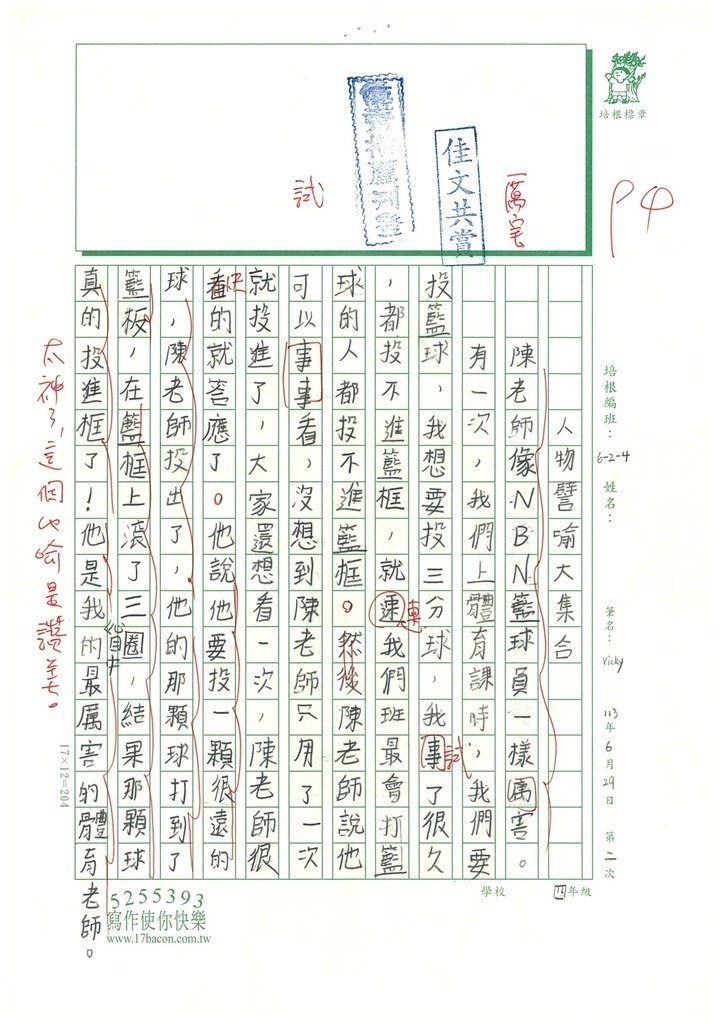 培根標章
P4
一萬宅
佳文共賞
優秀推薦刊登
試
培根編班：6-2-4 姓名：
筆名：Vicky
113年6月29日 第二次
學校 四年級
人物譬喻大集合
陳老師像NBN籃球員一樣厲害。
有一次，我們上體育課時，我們要
投籃球，我想要投三分球，我事了很久
試
，都投不進籃框，就速我們班最會打籃
連
球的人都投不進籃框。然後陳老師說他
可以事事看，沒想到陳老師只用了一次
就投進了，大家還想看一次，陳老師很
快
看的就答應了。他說他要投一顆很遠的
球，陳老師投出了，他的那顆球打到了
籃板，在籃框上滾了三圈，結果那顆球
真的投進框了！他是我的最厲害的體育老師。
太神了，這個比喻是讚美。
17×12=204
5255393
寫作使你快樂
www.17bacon.com.tw